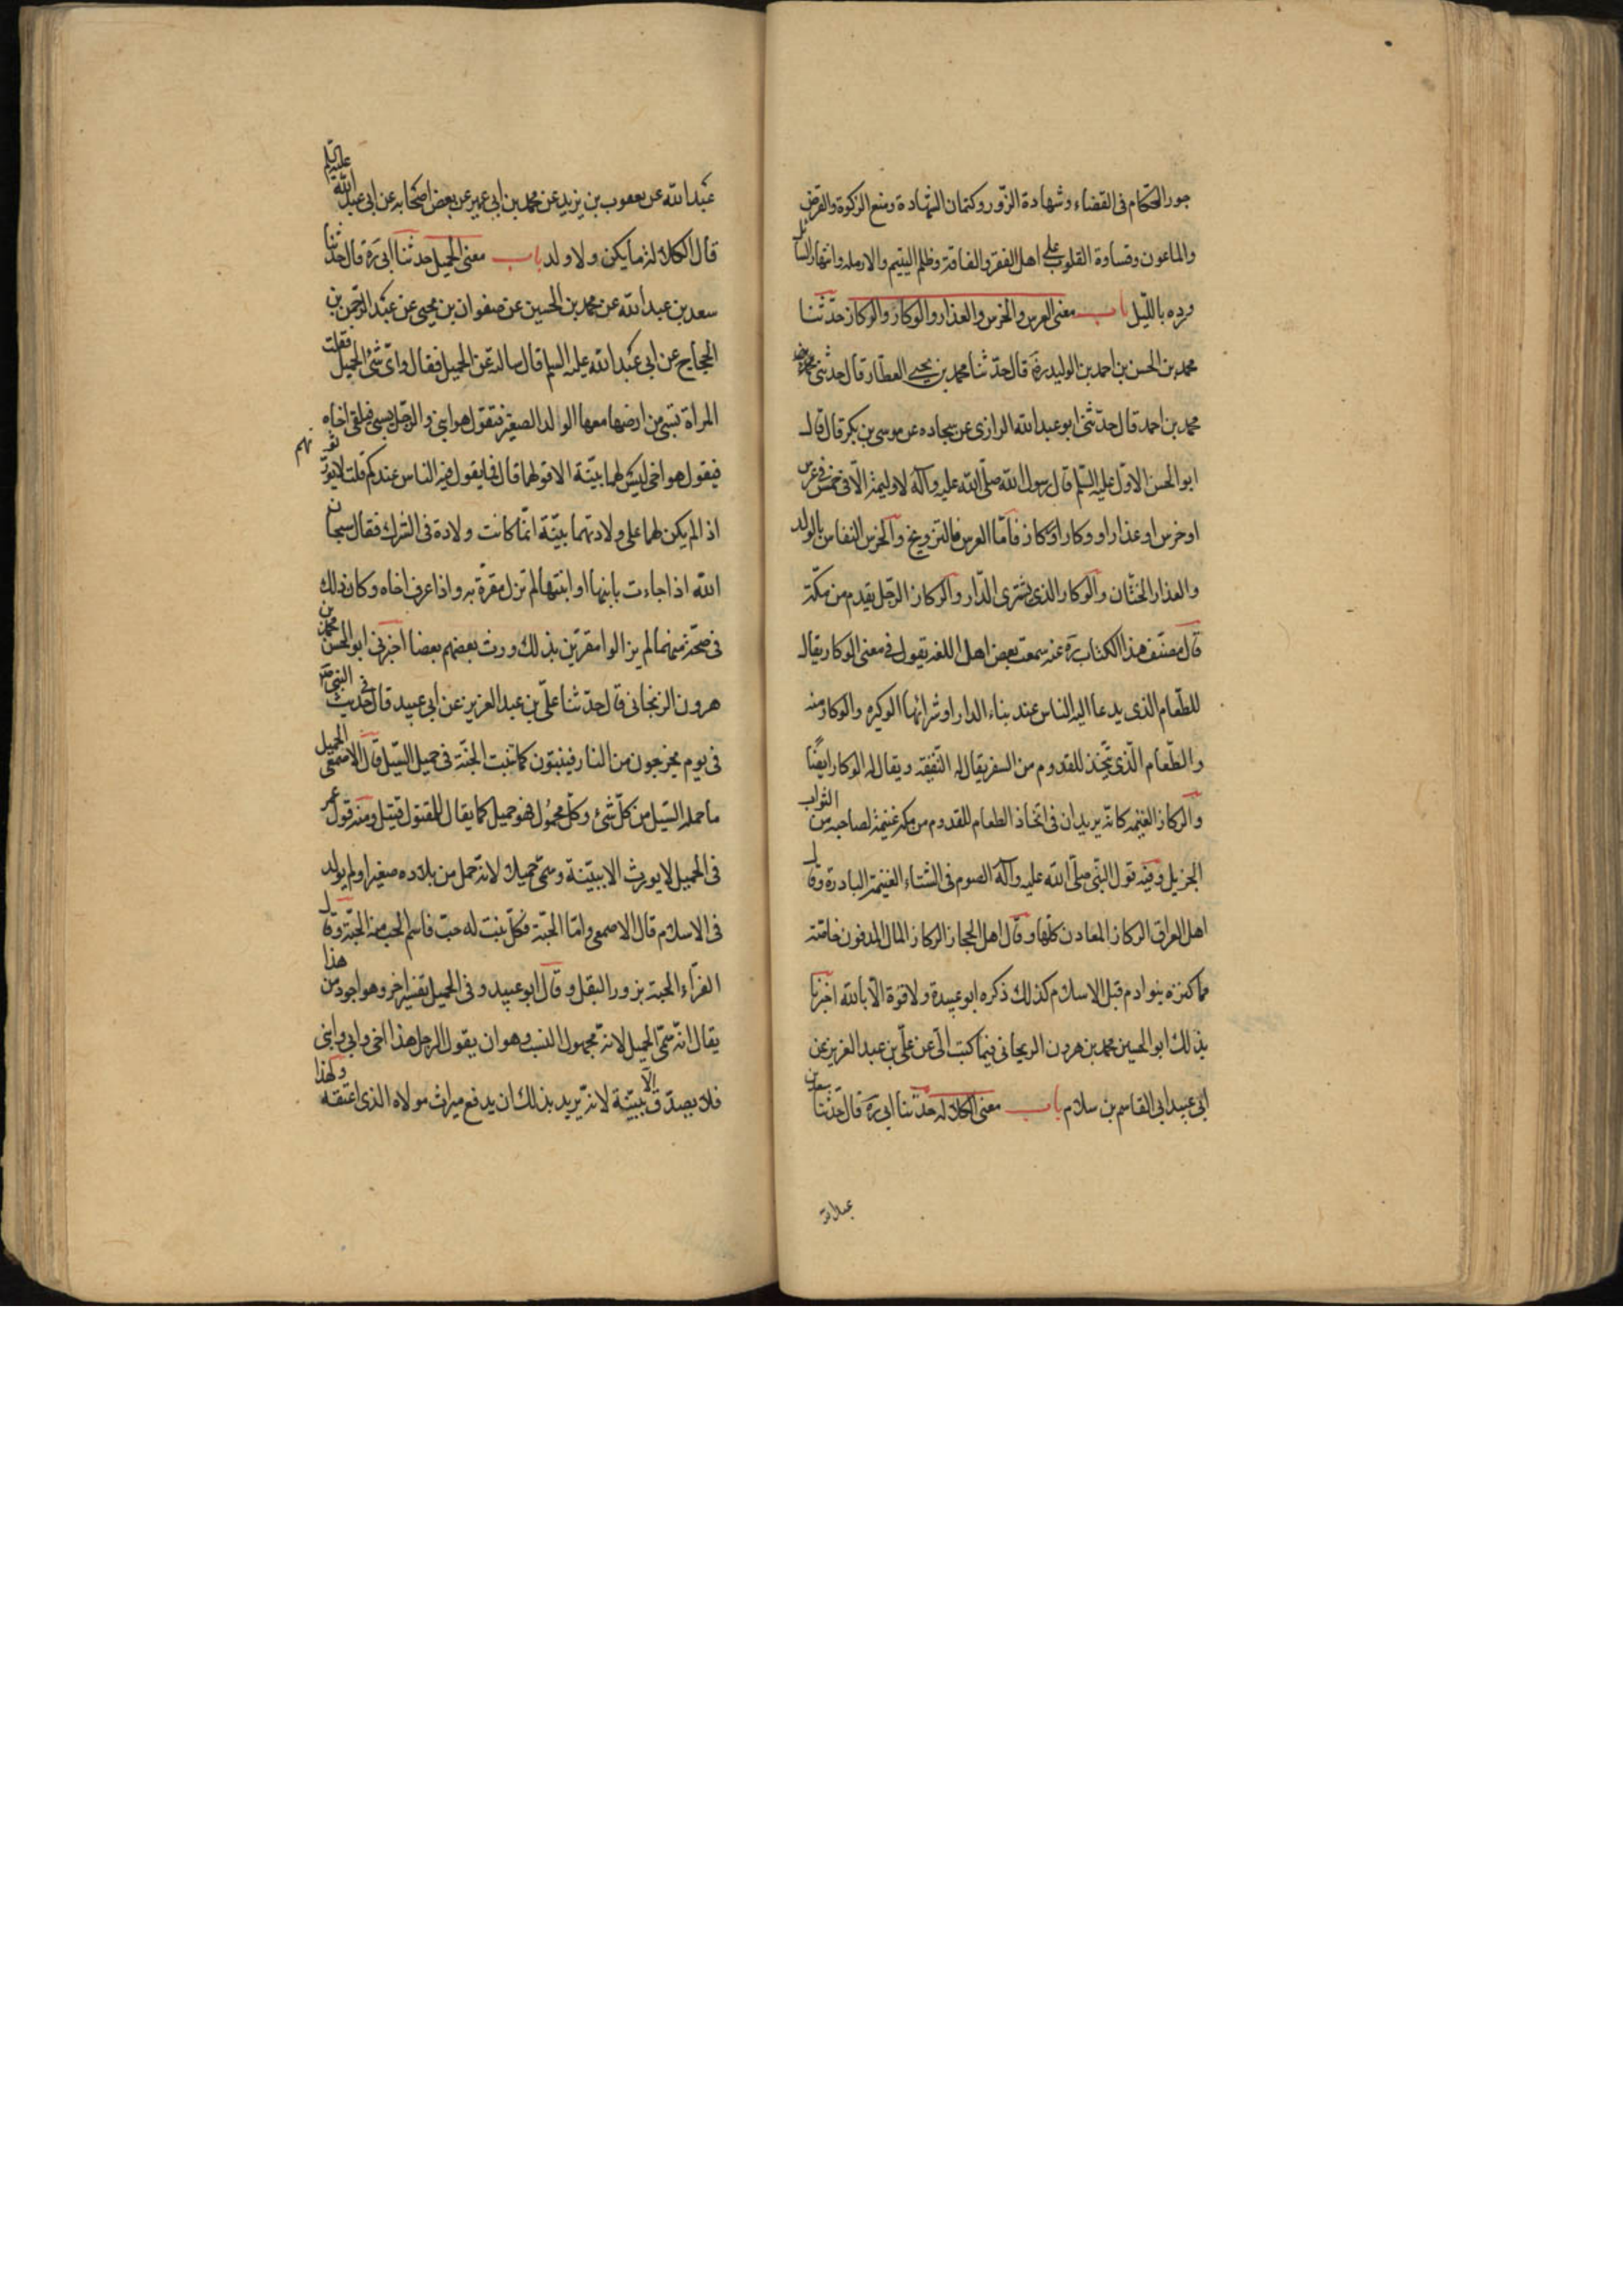 جور الحكام فى القضاء وشهادة الزور وكتمان الشهادة ومنع الزكوة والقرض
والماعون وقساوة القلوب على اهل الفقر والفاقة وظلم اليتيم والارملة وانتهار السائل
ورده بالليل باب معنى العرس والخرس والعذار والوكار والركاز حدثنا
محمد بن الحسن بن احمد بن الوليد ره قال حدثنا محمد بن يحيى العطار قال حدثنى
محمد بن احمد قال حدثنى ابو عبد الله الرازى عن سجاده عن موسى بن بكر قال قال
ابو الحسن الاول عليه السلم قال رسول الله صلى الله عليه وآله لا وليمة الا فى خمس فى عرس
او خرس او عذار او وكار او ركاز فاما العرس فالتزويج والخرس النفاس بالولد
والعذار الختان والوكار الذى يشترى الدار والركاز الرجل يقدم من مكة
قال مصنف هذا الكتاب ره عنه سمعت بعض اهل اللغة يقول فى معنى الوكار يقال
للطعام الذى يدعا اليه الناس عند بناء الدار او شرائها الوكيره والوكار منه
والطعام الذى يتخذ للقدوم من السفر يقال له النقيعه ويقال له الوكار ايضا
والركاز الغنيمه كانه يريد ان فى اتخاذ الطعام للقدوم من مكة غنيمة لصاحبه من الثواب
الجزيل وفيه قول النبى صلى الله عليه وآله الصوم فى الشتاء الغنيمة الباردة وقال
اهل العراق الركاز المعادن كلها وقال اهل الحجاز الركاز المال المدفون خاصة
مما كنزه بنو ادم قبل الاسلام كذلك ذكره ابو عبيدة ولا قوة الا بالله اخبرنا
بذلك ابو الحسين محمد بن هرون الزنجانى فيما كتب الى عن على بن عبد العزيز عن
ابى عبيد ابى القاسم بن سلام باب معنى الكلاله حدثنا ابى ره قال حدثنا سعد بن
عبد الله
عبد الله عن يعقوب بن يزيد عن محمد بن ابى عمير عن بعض اصحابه عن ابى عبد الله عليه السلم
قال الكلالة ما لم يكن ولا ولد باب معنى الحميل حدثنا ابى ره قال حدثنا
سعد بن عبد الله عن محمد بن الحسين عن صفوان بن يحيى عن عبد الرحمن بن
الحجاج عن ابى عبد الله عليه السلم قال سالته عن الحميل فقال واى شئ الحميل فقلت
المراة تسبى من ارضها معها الولد الصغير فتقول هو ابنى والرجل يسبى فيلقى اخاه
فيقول هو اخى ليس لهما بينة الا قولهما قال فما يقول فيه الناس عندكم قلت لا يورثونهم
اذا لم يكن لهما على ولادتهما بينة انما كانت ولادة فى الشرك فقال سبحان
الله اذا جاءت بابنها او ابنتها لم تزل مقرة به واذا عرف اخاه وكان ذلك
فى صحة منهما لم يزالوا مقرين بذلك ورث بعضهم بعضا اخبرنى ابو الحسن محمد بن
هرون الزنجانى قال حدثنا على بن عبد العزيز عن ابى عبيد قال فى حديث النبى ص
فى يوم يخرجون من النار فينبتون كما تنبت الحبة فى حميل السيل قال الاصمعى الحميل
ما حمله السيل من كل شئ وكل محمول فهو حميل كما يقال للمقتول قتيل ومنه قول عمر
فى الحميل لا يورث الا ببينة وسمى حميلا لانه حمل من بلاده صغيرا ولم يولد
فى الاسلام قال الاصمعى واما الحبة فكل نبت له حب فاسم الحب منه الحبة وقال
الفراء الحبة بزور البقل وقال ابو عبيد وفى الحميل تفسير اخر وهو اجود من هذا
يقال انه سمى الحميل لانه مجهول النسب وهو ان يقول الرجل هذا اخى وابى وابنى
فلا يصدق الا ببينة لانه يريد بذلك ان يدفع ميراث مولاه الذى اعتقه ولهذا